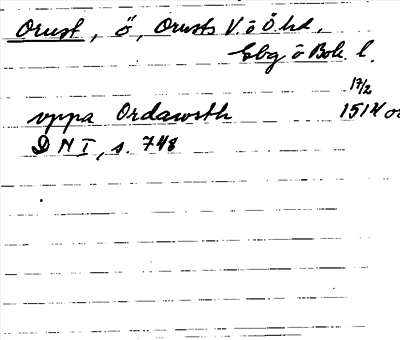 Orust, ö, Orusts V. ö Ö. hd.
Gbg ö Boh. l.
17/2
uppa Ordawsth 1514 or
DN I, s. 748